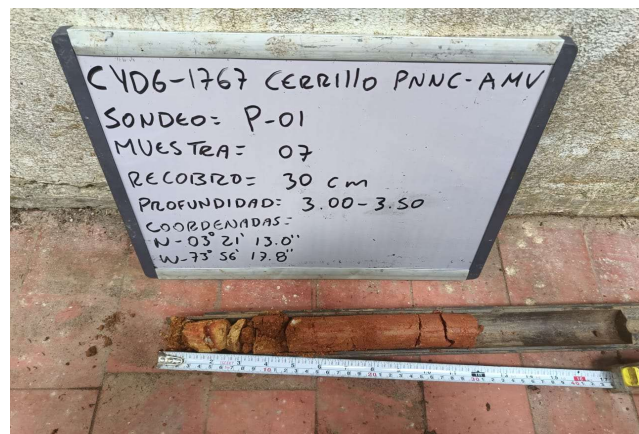 CYDG-1767 CERRILLO PNNC-AMV
SONDEO: P-01
MUESTRA: 07
RECOBRO: 30 cm
PROFUNDIDAD: 3.00-3.50
COORDENADAS:
N-03° 21' 13.0"
W-73° 56' 17.8"